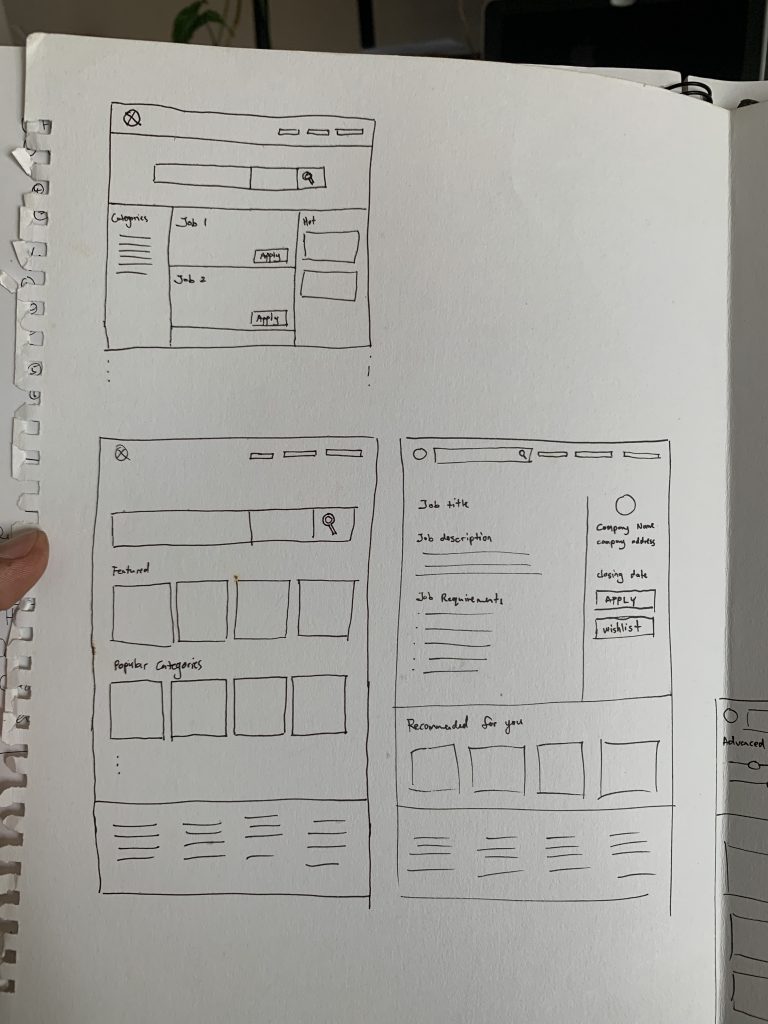 Categories
Job 1
Apply
Job 2
Apply
Hot
Featured
Popular Categories
Job title
Job description
Job Requirements
Company Name
company address
closing date
APPLY
wishlist
Recommended for you
Advanced